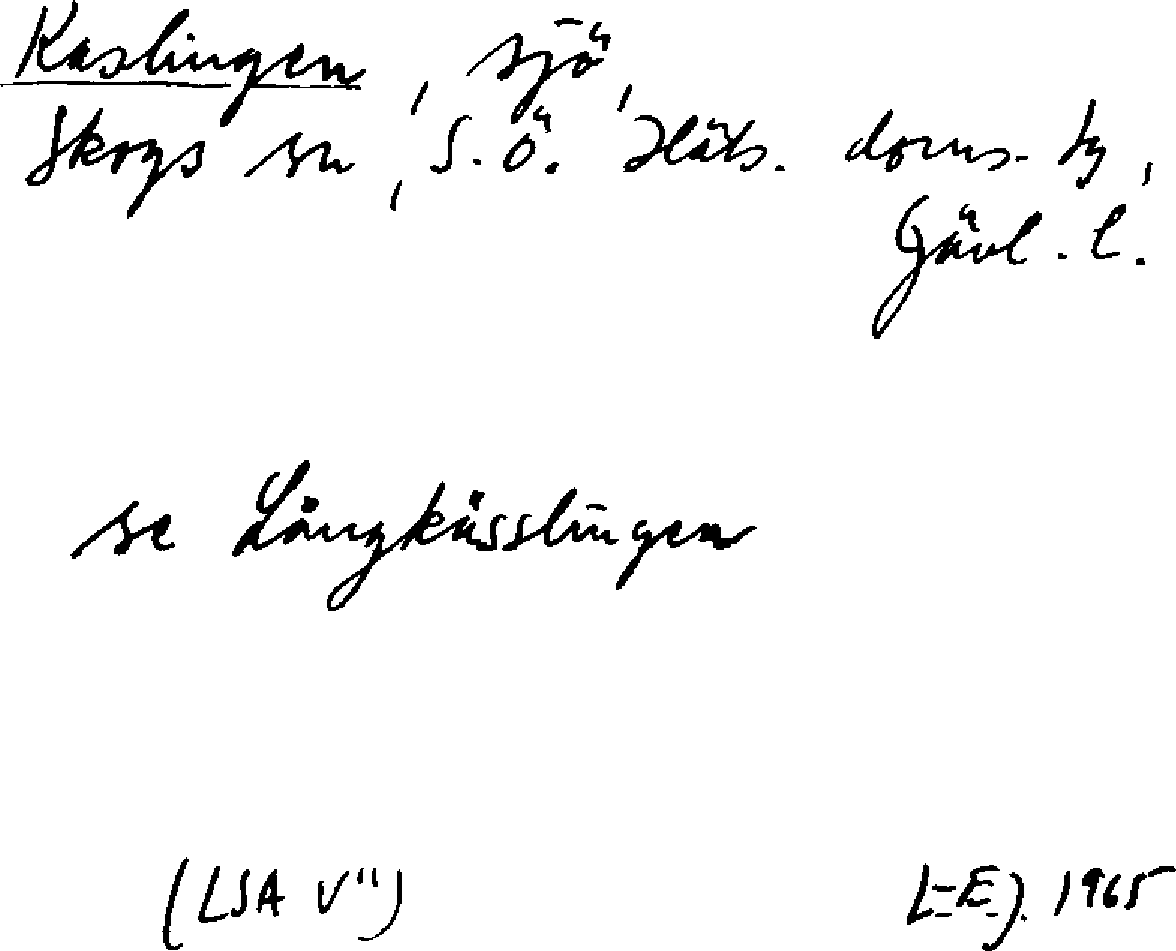 Kaslingen, sjö,
Skogs sn, S.Ö. Häls. doms. tg,
Gävl. l.
se Långkässlingen
(LSA V")
L-E.J. 1965